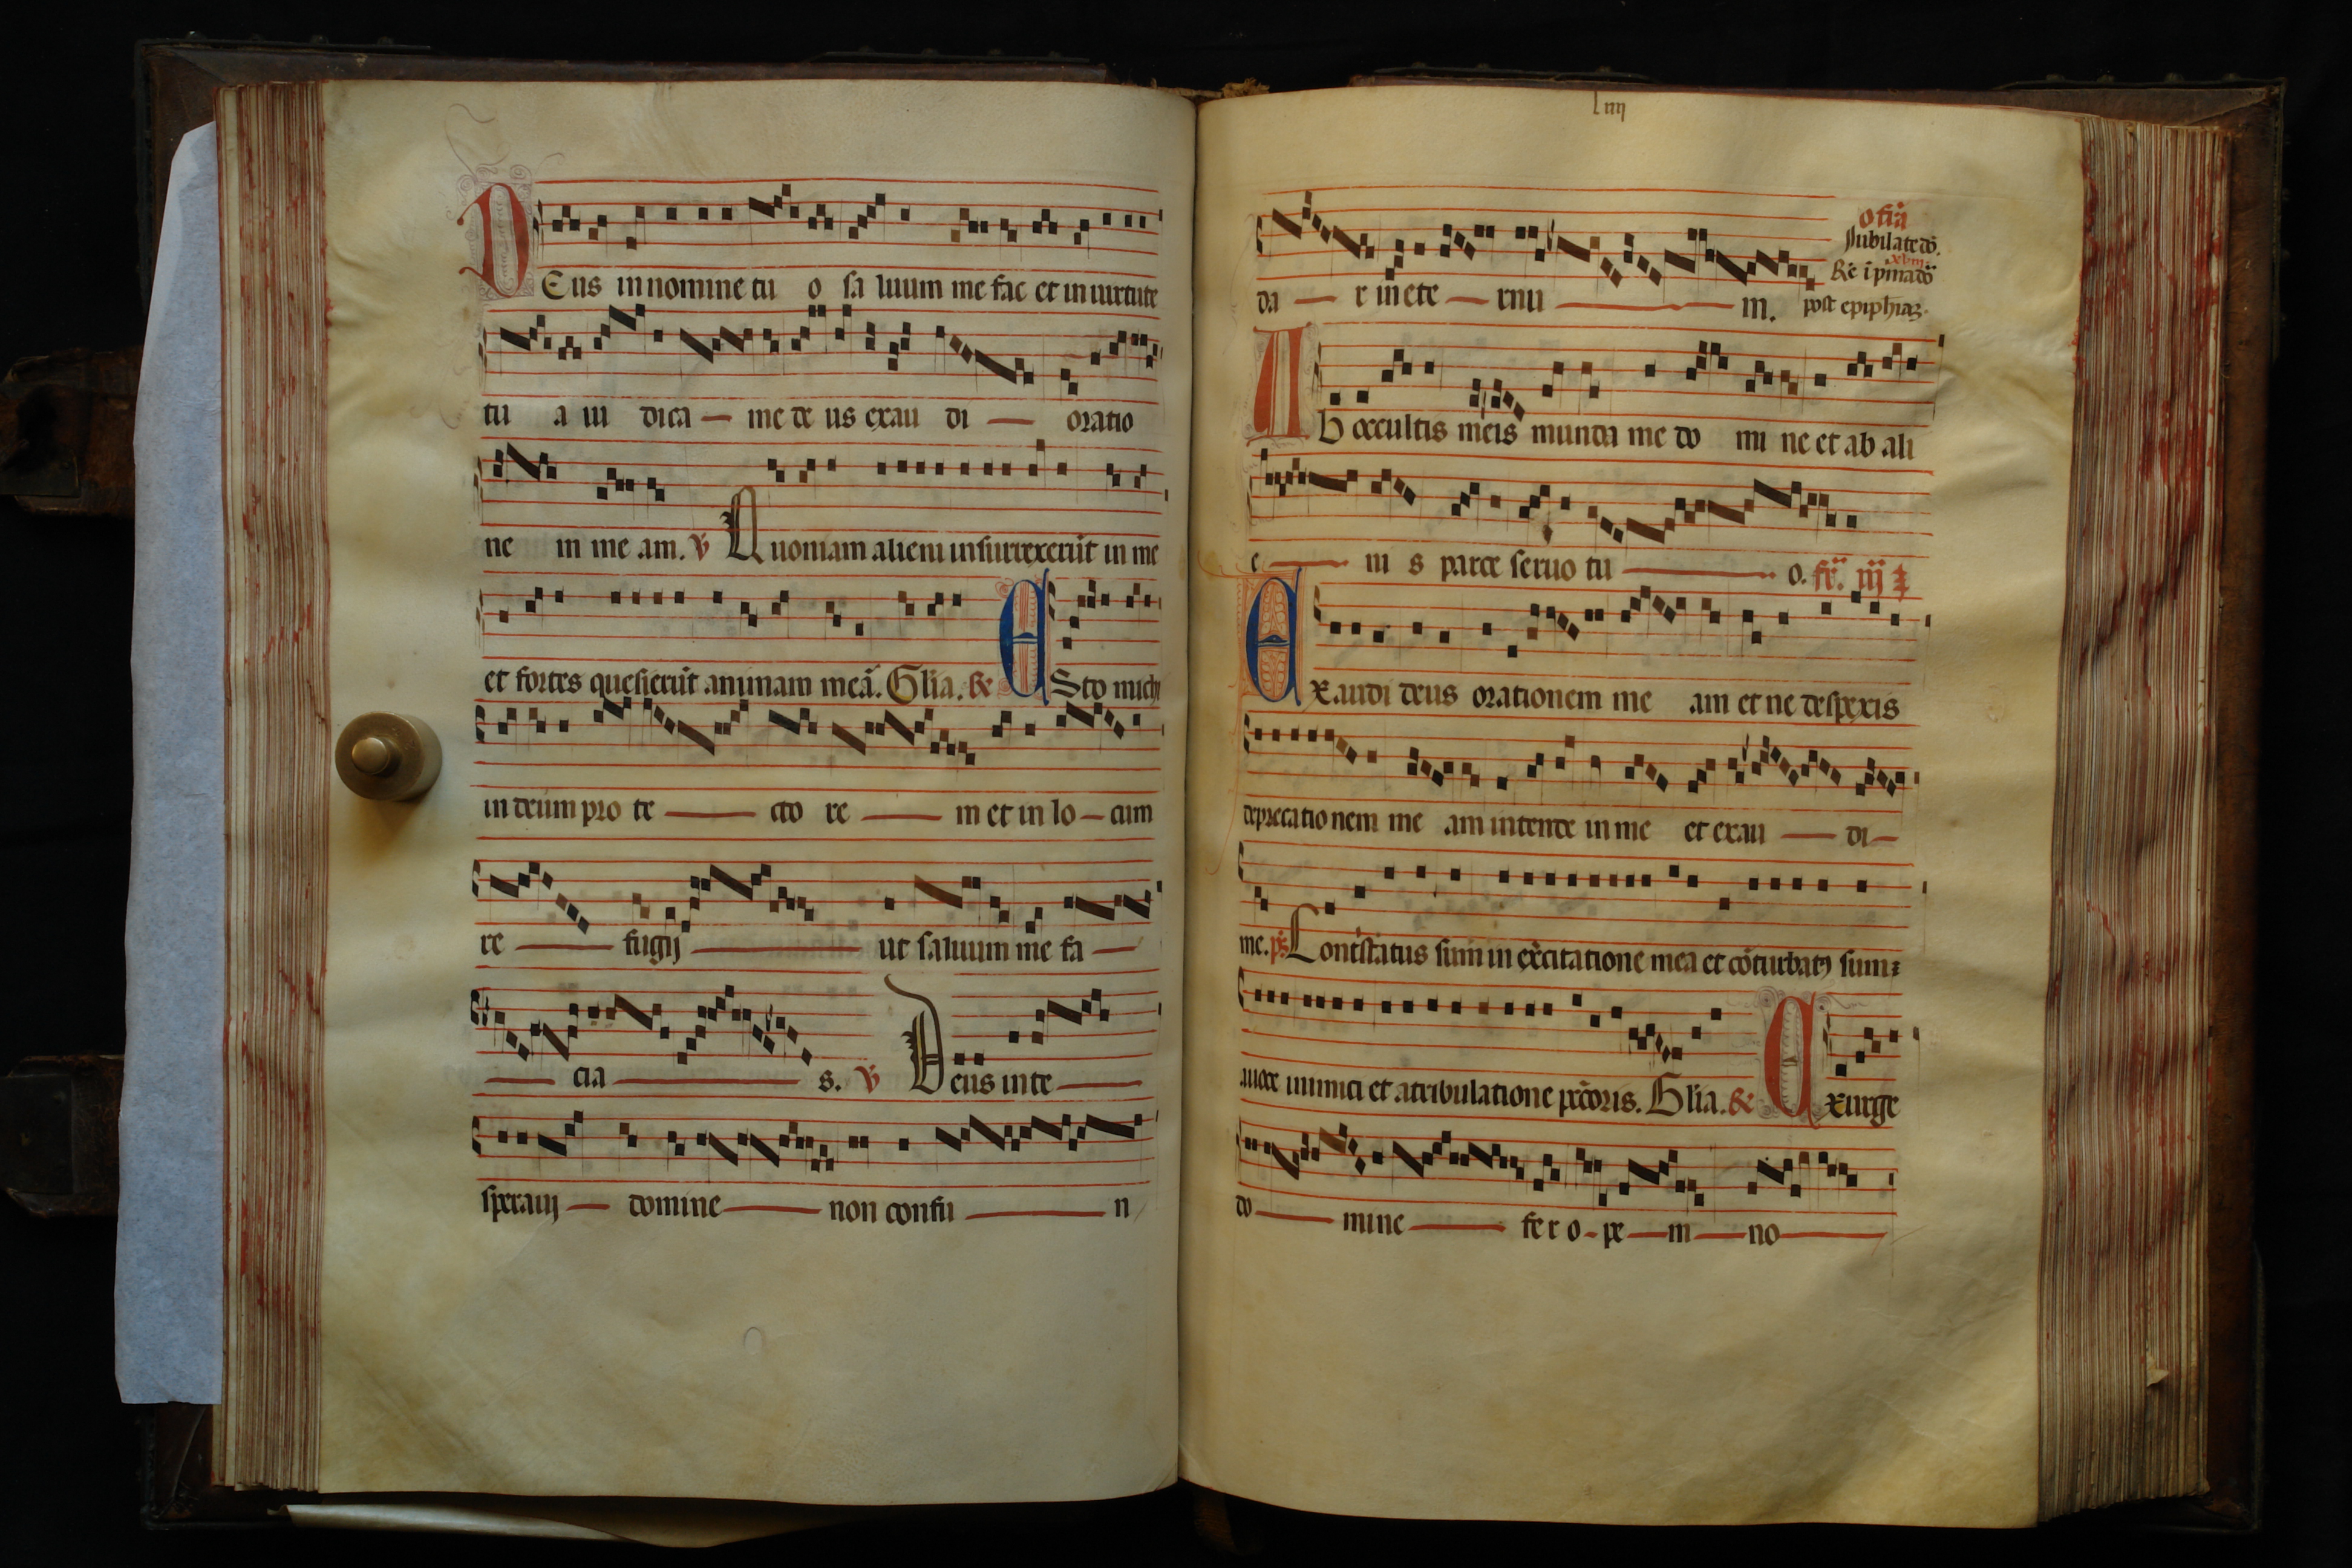 DEus in nomine tu o sa luum me fac et in uirtute
tu a iu dica me de us exau di oratio
ne m me am. ℣ Quoniam alieni insurrexerūt in me
et fortes quesierūt animam meā. Glīa. & ESto michi
in deum pro te cto re m et in lo cum
re fugij ut saluum me fa
cia s. ℣ Deus in te
speraui domine non confu n
lıııj
da r in ete rnu m.
Jubilate dō.
post epiphīaꝫ.
Ab occultis meis munda me do mi ne et ab ali
e ni s parce seruo tu o. fr̄. iij
Exaudi deus orationem me am et ne despexis
deprecationem me am intende in me et exau di
me. p̄s. Contstatus sum in exercitatione mea et cōturbatꝰ sum
auoce inimici et atribulatione pc̄coris. Glīa. & Exurge
do mine fe r o pe m no